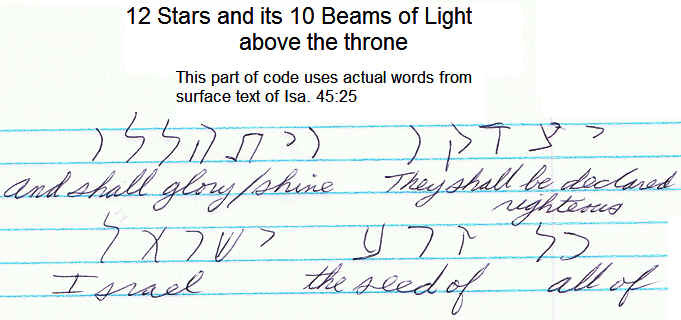 12 Stars and its 10 Beams of Light
above the throne
This part of code uses actual words from
surface text of Isa. 45:25
יצדקו ויתהללו
and shall glory/shine They shall be declared
righteous
כל זרע ישראל
Israel the seed of all of